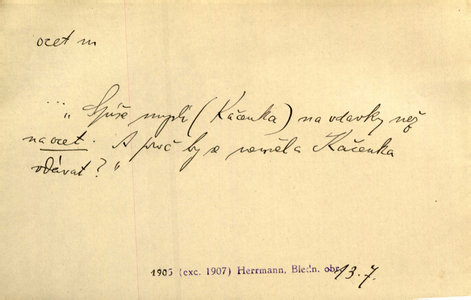 ocet m
... „Spíše myslí (Káčenka) na vdavky než
na ocet. A proč by se neměla Káčenka
vdávat?"
1905 (exc. 1907) Herrmann, Bledn. obr. 13. 7.